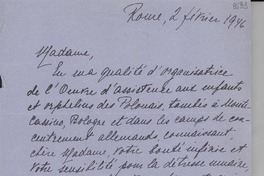 Rome, 2 février 1946
Madame,
En ma qualité d'organisatrice
de l'Oeuvre d'assistance aux enfants
et orphelins des Polonais, tombés à Monte
Cassino, Bologne et dans les camps de con-
centrement allemands, connaissant,
chère Madame, votre bonté infinie et
votre sensibilité pour la détresse humaine,